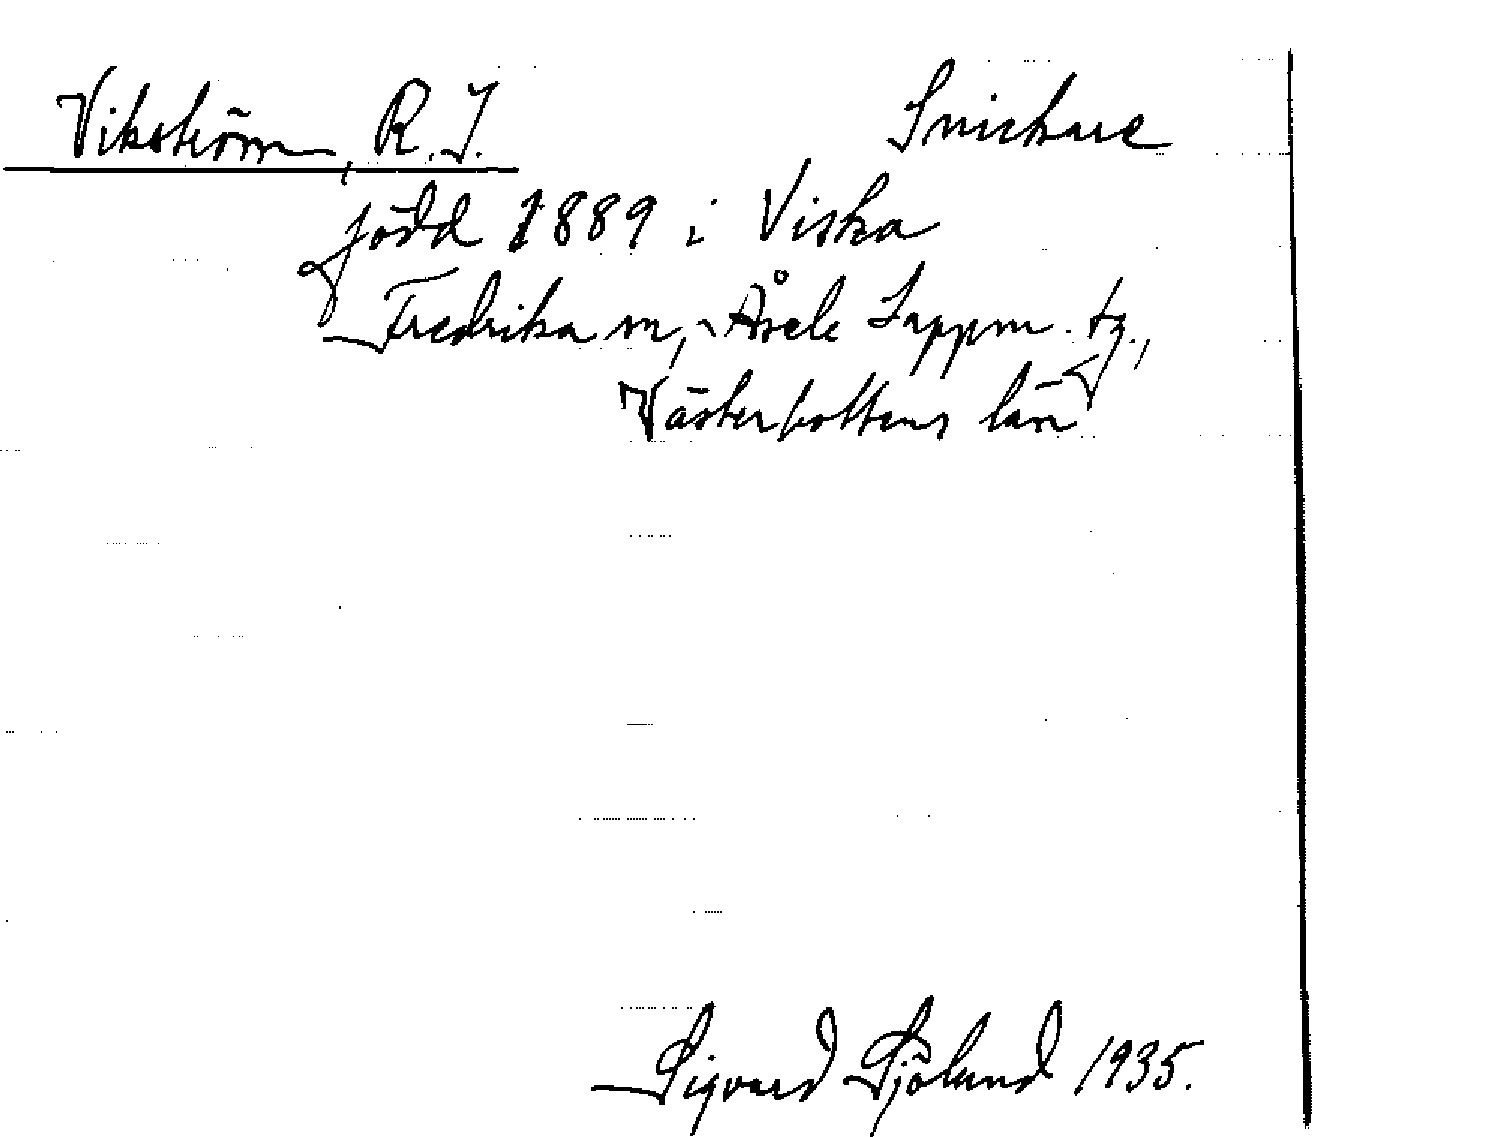 Vikström, R. J. Snickare
född 1889 i Viska
Fredrika sn, Åsele Lappm. tg.,
Västerbottens län
Sigvard Sjölund 1935.